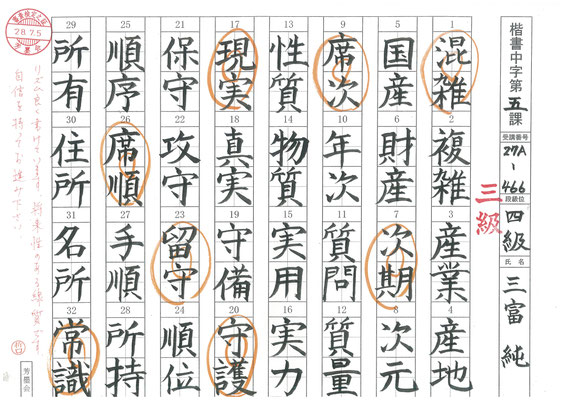 楷書中字第五課
受講番号 27A-466
段級位 四級
三級
氏名 三富 純
1 混雑 2 複雑 3 産業 4 産地
5 国産 6 財産 7 次期 8 次元
9 席次 10 年次 11 質問 12 質量
13 性質 14 物質 15 実用 16 実力
17 現実 18 真実 19 守備 20 守護
21 保守 22 攻守 23 留守 24 順位
25 順序 26 席順 27 手順 28 所持
29 所有 30 住所 31 名所 32 常識
28.7.5
リズム良く書けています。将来性のある線質です。
自信を持ってお進み下さい。
芳墨会